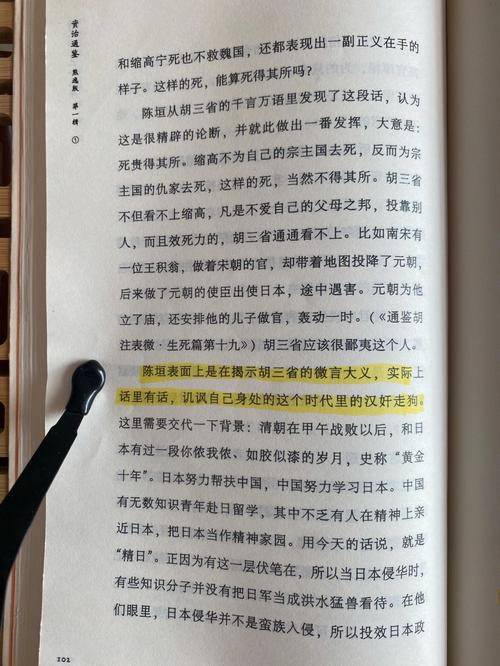 资治通鉴 熊逸版 第一辑 ①
和缩高宁死也不救魏国，还都表现出一副正义在手的
样子。这样的死，能算死得其所吗？
陈垣从胡三省的千言万语里发现了这段话，认为
这是很精辟的论断，并就此做出一番发挥，大意是：
死贵得其所。缩高不为自己的宗主国去死，反而为宗
主国的仇家去死，这样的死，当然不得其所。胡三省
不但看不上缩高，凡是不爱自己的父母之邦，投靠别
人，而且效死力的，胡三省通通看不上。比如南宋有
一位王积翁，做着宋朝的官，却带着地图投降了元朝，
后来做了元朝的使臣出使日本，途中遇害。元朝为他
立了庙，还安排他的儿子做官，轰动一时。（《通鉴胡
注表微·生死篇第十九》）胡三省应该很鄙夷这个人。
陈垣表面上是在揭示胡三省的微言大义，实际上
话里有话，讥讽自己身处的这个时代里的汉奸走狗。
这里需要交代一下背景：清朝在甲午战败以后，和日
本有过一段你侬我侬、如胶似漆的岁月，史称“黄金
十年”。日本努力帮扶中国，中国努力学习日本。中国
有无数知识青年赴日留学，其中不乏有人在精神上亲
近日本，把日本当作精神家园。用今天的话说，就是
“精日”。正因为有这一层伏笔在，所以当日本侵华时，
有些知识分子并没有把日军当成洪水猛兽看待。在他
们眼里，日本侵华并不是蛮族入侵，所以投效日本政
102